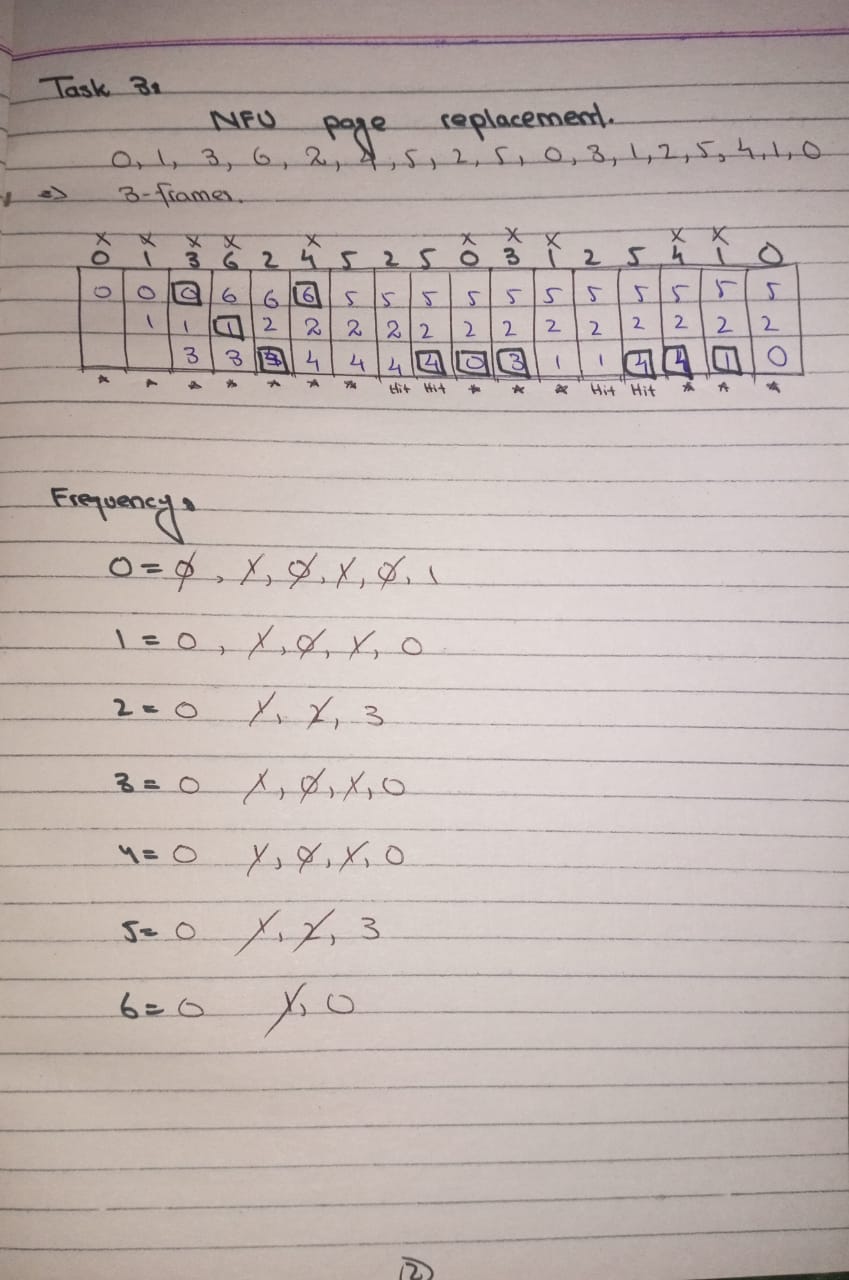 Task 3:
NFU page replacement.
0, 1, 3, 6, 2, 4, 5, 2, 5, 0, 3, 1, 2, 5, 4, 1, 0
=> 3-frames.
x x x x x x x x x x
0 1 3 6 2 4 5 2 5 0 3 1 2 5 4 1 0
0 0 0 6 6 6 5 5 5 5 5 5 5 5 5 5 5
1 1 1 2 2 2 2 2 2 2 2 2 2 2 2 2
3 3 3 4 4 4 4 0 3 1 1 4 4 1 0
* * * * * * * Hit Hit * * * Hit Hit * * *
Frequency:
0 = 0, 1, 0, 1, 0, 1
1 = 0, 1, 0, 1, 0
2 = 0 1, 2, 3
3 = 0 1, 0, 1, 0
4 = 0 1, 0, 1, 0
5 = 0 1, 2, 3
6 = 0 1, 0
(2)